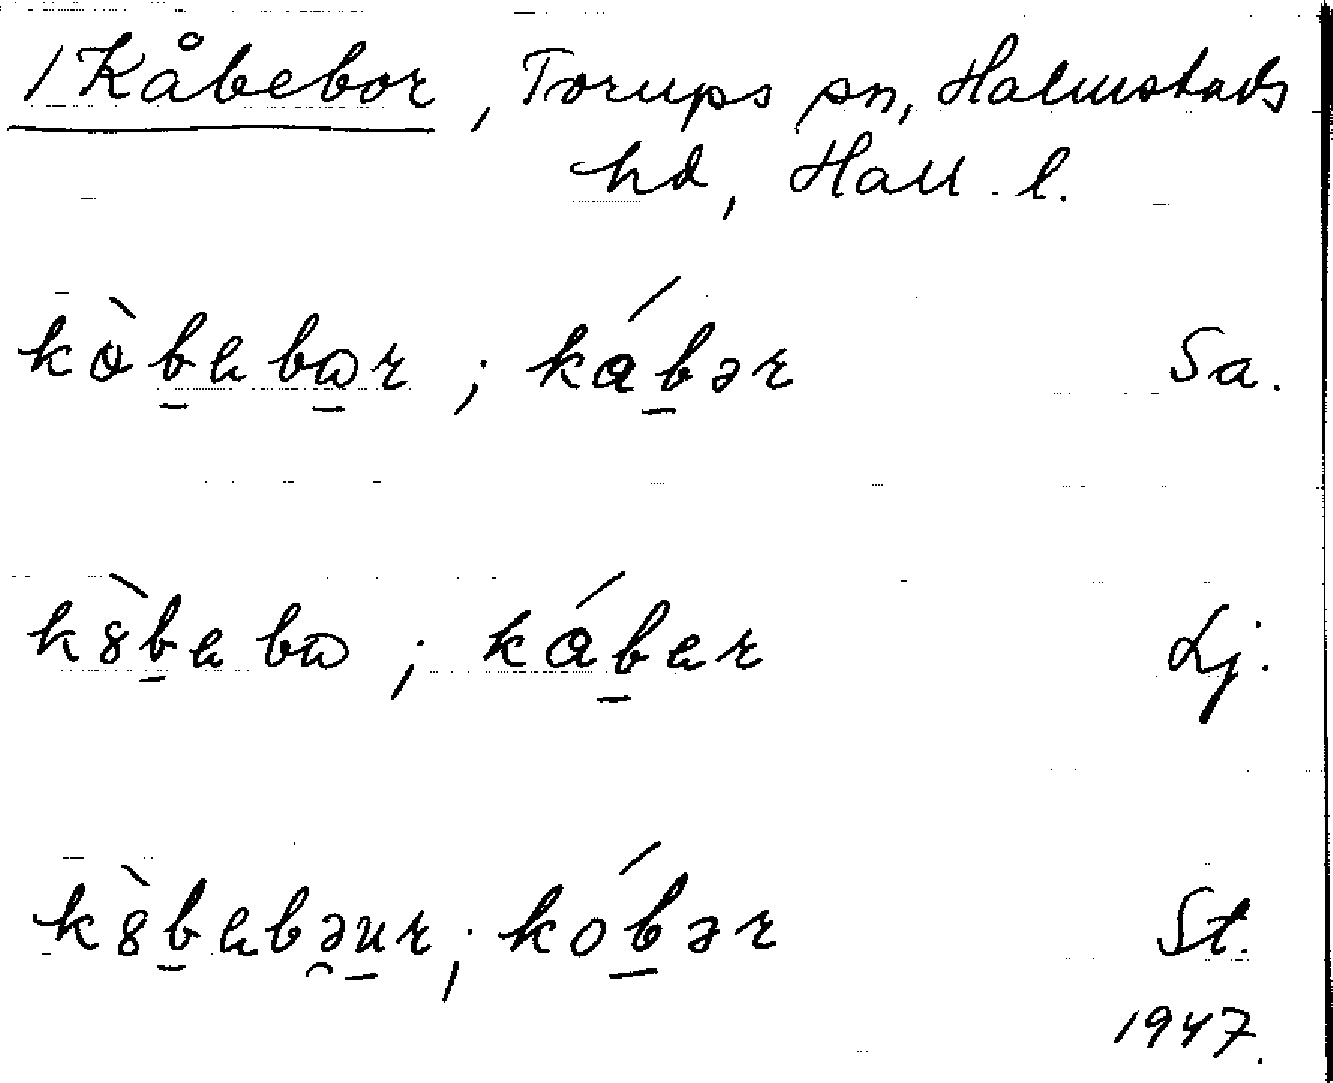 1 Kåbebor, Torups sn, Halmstads
hd, Hall. l.
kòb̲ebω̲r ; káb̲ər Sa.
k8̀b̲ebω ; káb̲er Lj.
k8̀b̲ebəu̲r ; kób̲ər St.
1947.